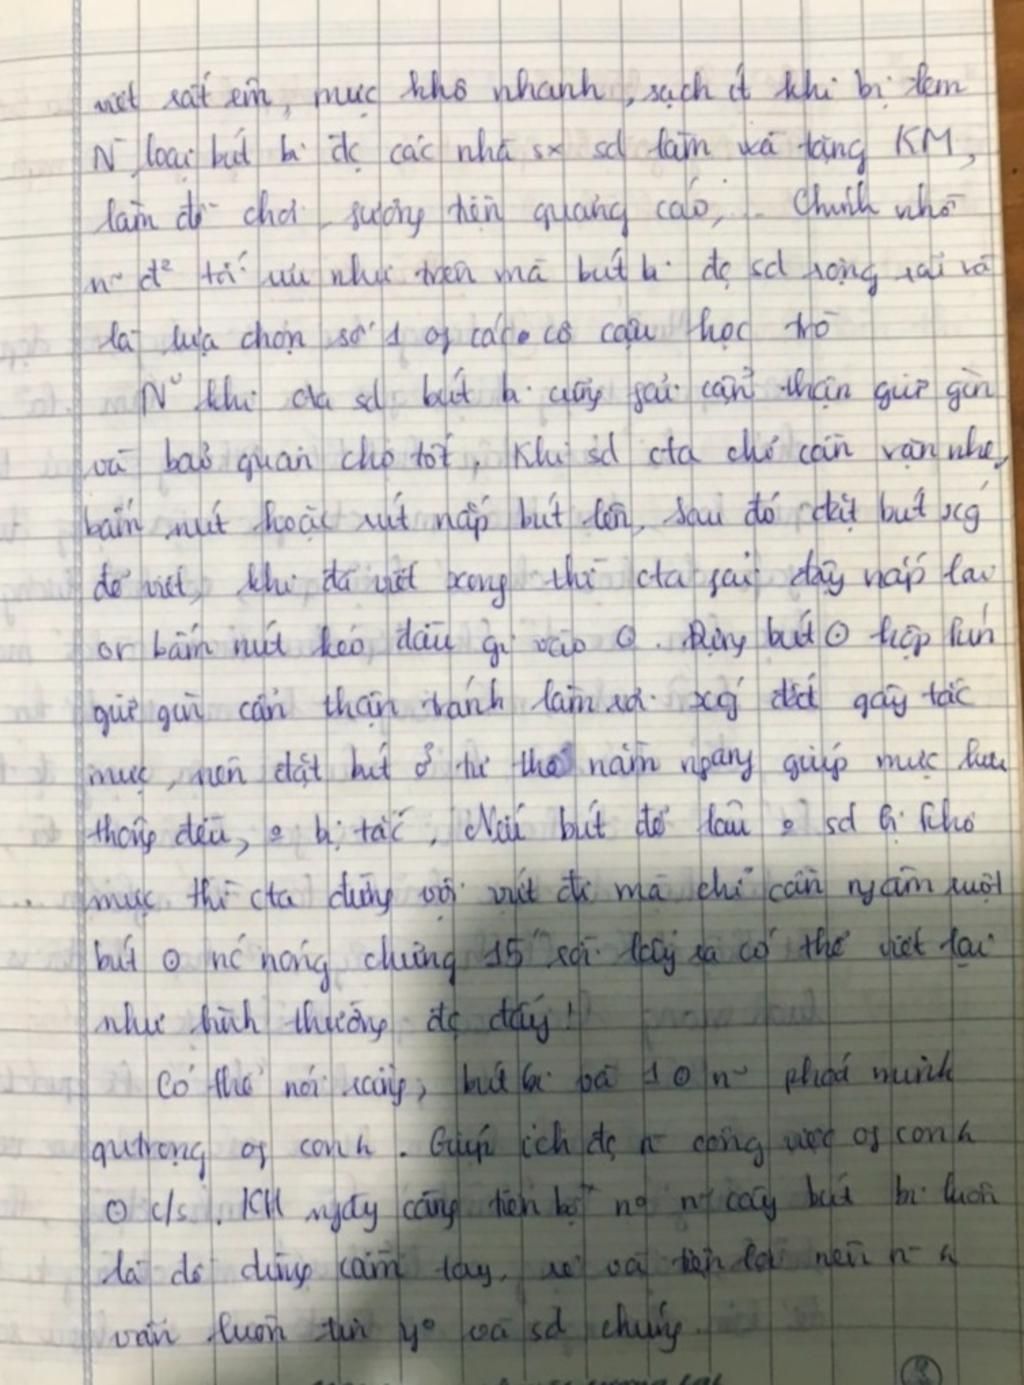 viết rất êm, mực khô nhanh, sạch ít khi bị lem
N~ loại bút bi đc các nhà sx sd làm và tặng KM,
làm đồ chơi, phương tiện quảng cáo, .. Chính nhờ
n~ đ² tối ưu như trên mà bút bi đc sd rộng rãi và
là lựa chọn số 1 of các cô cậu học trò
Nº khi cta sd bút bi cũng phải cẩn thận giữ gìn
và bảo quản cho tốt. Khi sd cta chỉ cần vặn nhẹ,
bấm nút hoặc rút nắp bút lên, sau đó đặt bút xg
để viết, khi đã viết xong thì cta phải đậy nắp lại
or bấm nút kéo đầu bi vào ⊙. Đựng bút ⊙ hộp bút
giữ gìn cẩn thận tránh làm rơi xg đất gây tắc
mực, nên đặt bút ở tư thế nằm ngang giúp mực lưu
thông đều, o bị tắc. Nếu bút để lâu o sd bị khô
mực thì cta đừng vội vứt đi mà chỉ cần ngâm ruột
bút ⊙ nc nóng chừng 15' rồi lấy ra có thể viết lại
như bình thường đc đấy!
Có thể nói rằng, bút bi là 1 ⊙ n~ phát minh
qutrọng of con h. Giúp ích đc n~ công việc of con h
⊙ c/s. KH ngày càng tiến bộ nº n~ cây bút bi luôn
là đồ dùng cầm tay, rẻ và tiện lợi nên n~ h
vẫn luôn tin yº và sd chúng.